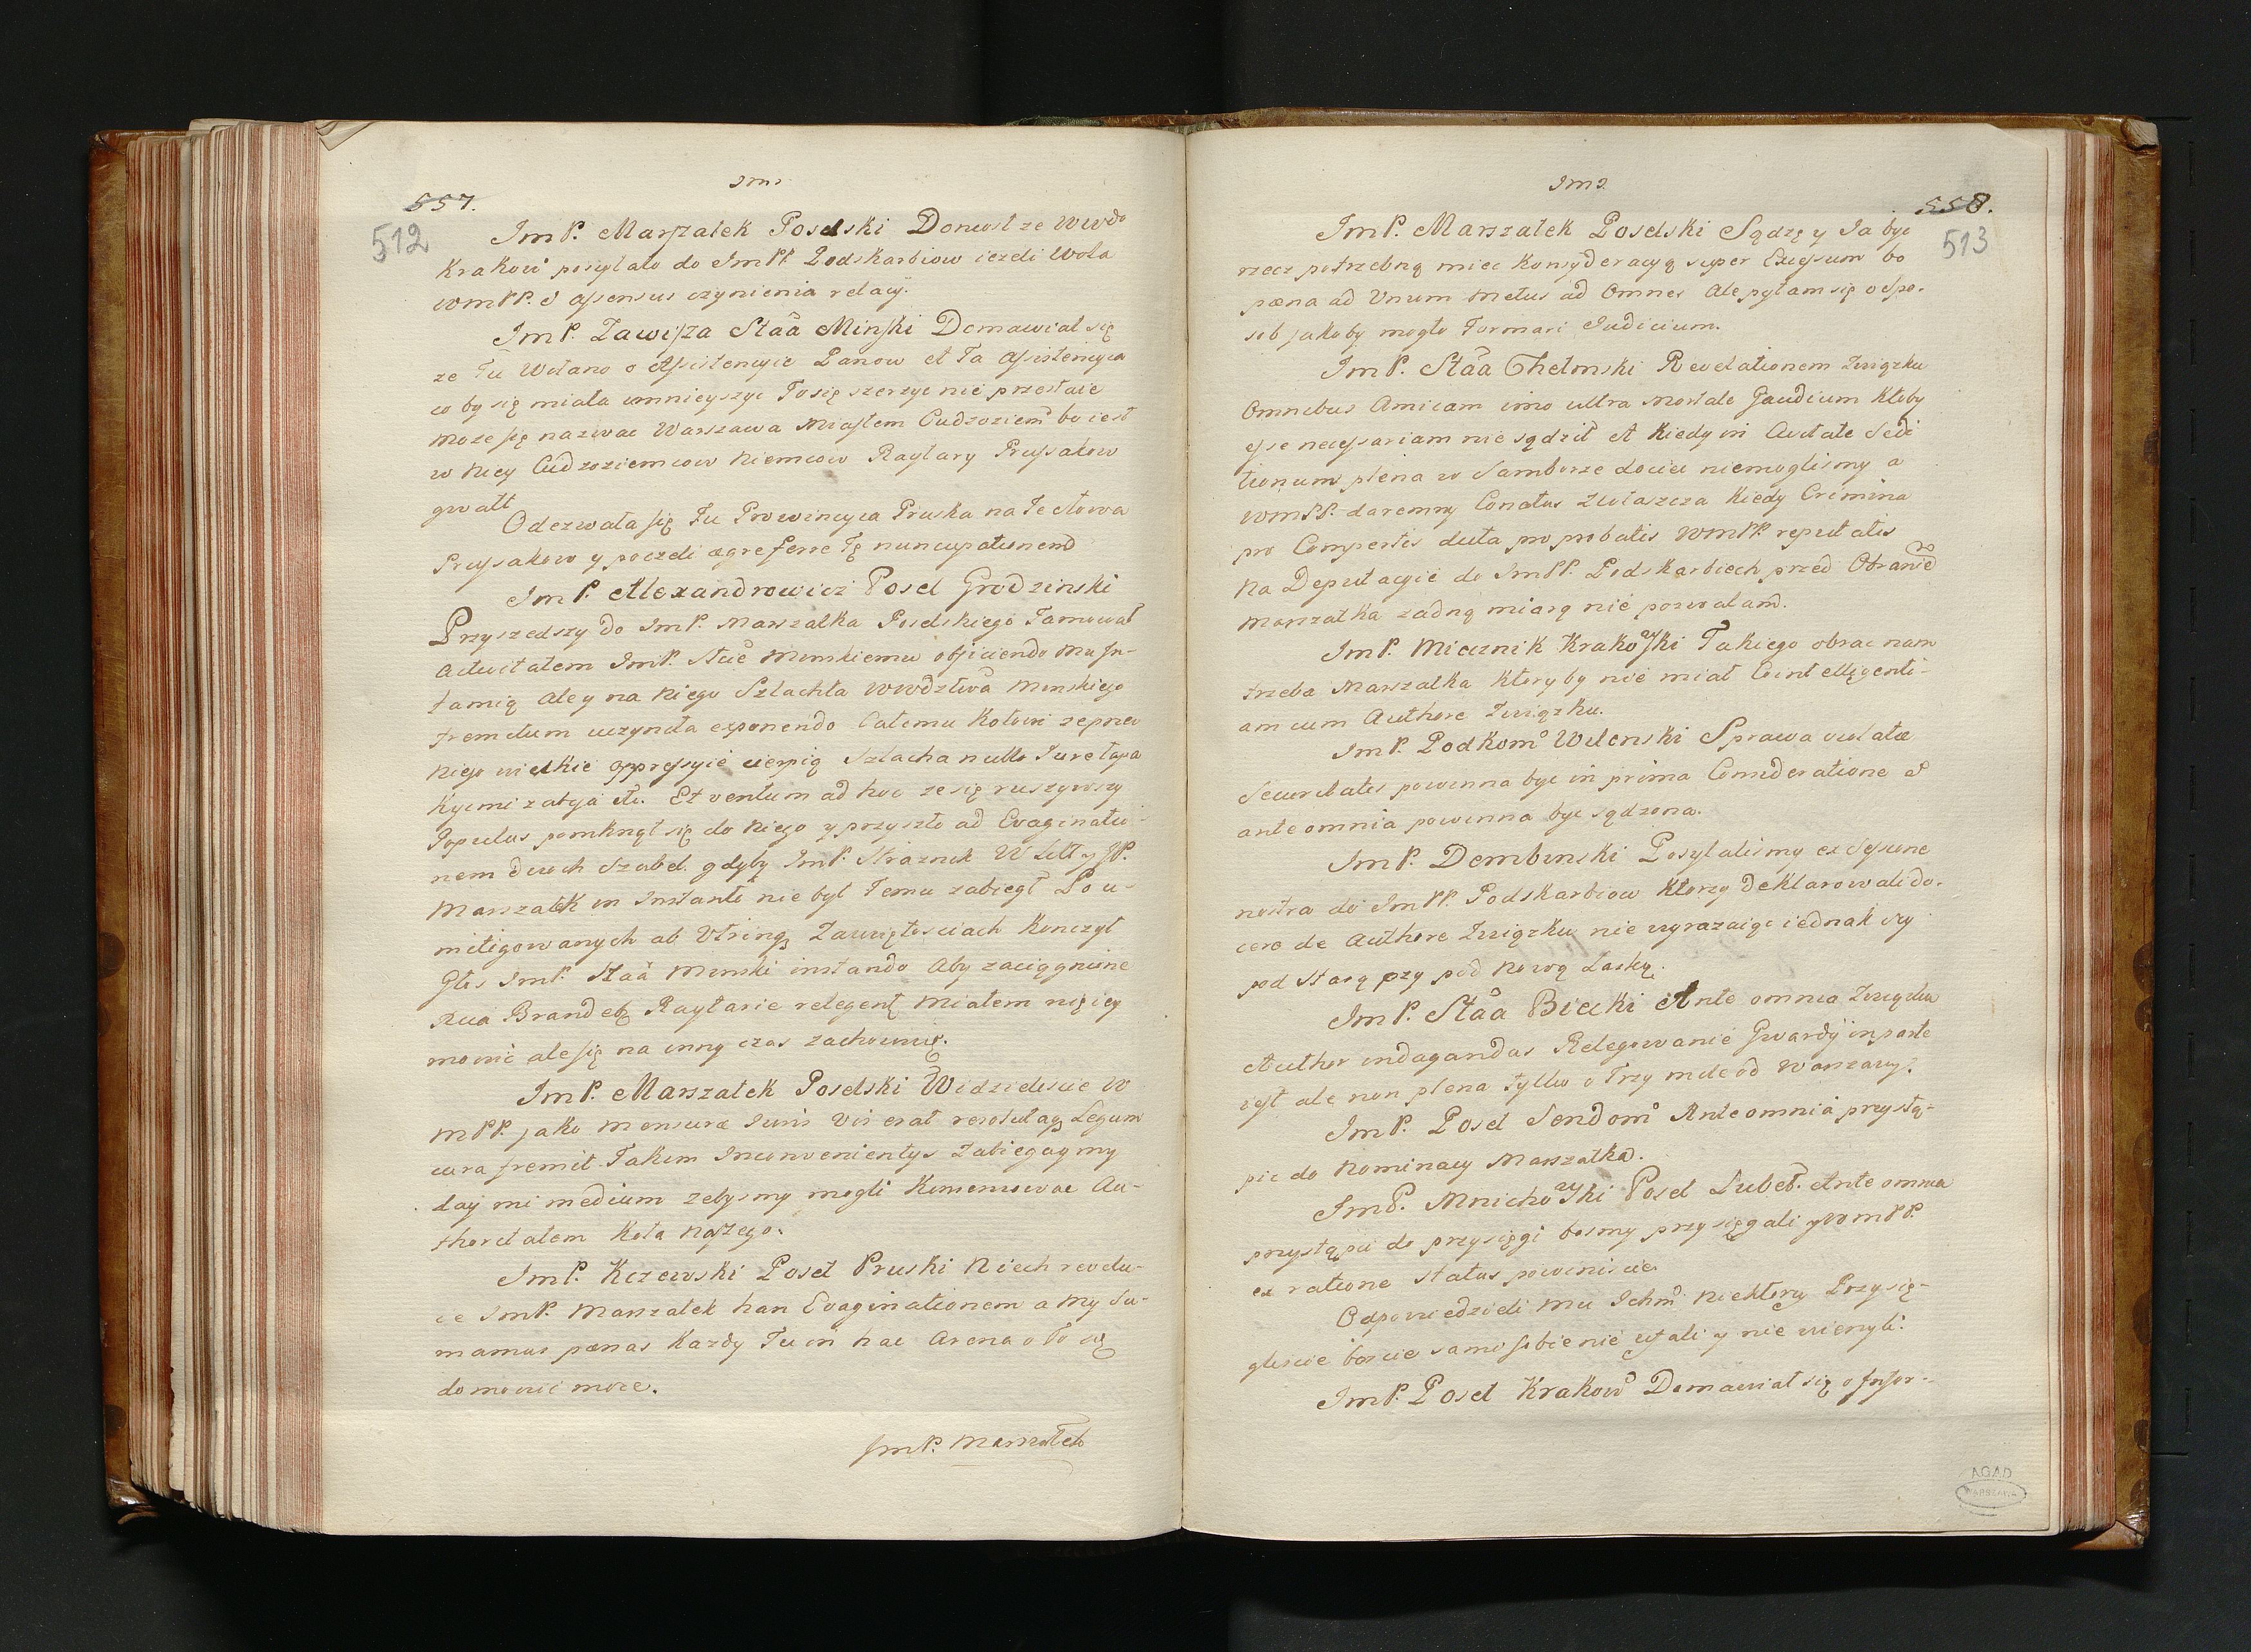 557.
512
ImP. Marszałek Poselski Doniosł ze Wwdo
Krakow posyłało do ImPP. Podskarbiow ieżeli Wola
WmPP. I assensus czynienia relacÿ.
ImP. Zawisza Staa Minski Domawiał się
ze Tu Wołano o Assistencyie Panow et Ta Assistencyia
co by się miała umnieyszyc To się szerzyc nie przestaie
Moze się nazwac Warszawa Miastem Cudzoziem bo iest
w Niey Cudzoziemcow Niemcow Raytary Prusakow
gwałt
Odezwała się Tu Prowincyia Pruska na Te słowa
Prusakow y poczeli ægre ferre Tę nuncupationem
ImP. Alexandrowicz Poseł Grodzinski
Przyszedszy do ImP. Marszałka Poselskiego Tamował
Activitatem ImP. Stae Minskiemu objiciendo Mu In-
famią ale y na Niego Szlachta Wwdztwa Minskiego
fremitum uczyniła exponendo Całemu Kołowi ze przez
Niego wielkie oppressyie cierpią Szlacha nullo Iure
Kijemi zabija etc. Et ventum ad hoc ze się ruszywszy
Populus pomknął się do Niego y przyszło ad Evaginatio-
nem dwoch Szabel. gdyby ImP. Straznik W Litt y JP.
Marszałek in Instanti nie był Temu zabiegł Po u-
mitigowanych ab Utrinq Zawziętosciach Konczył
Głos ImP. Staa Minski instando Aby zaciągnione
Brandeb Raytarie relegent Miałem więcey
mowic ale się na inny czas zachowuię.
ImP. Marszałek Poselski Widzielicie W
MPP. jako Mensura Iuris Vis erat resolutaq Legum
cura fremit Takim Inconvenientys Zabiegaymy
day mi medium zebysmy mogli Konserwowac Au-
thoritatem Koła Naszego.
ImP. Kczewski Poseł Pruski Niech revelu-
ie ImP. Marszałek han Evaginationem a My Su-
mamus pænas Kazdy Tu in hac Arena o To się
domowic moze.
ImP. Marszałek
558.
513
ImP. Marszałek Poselski Sądzę y Ia byc
rzecz potrzebną miec Konsyderacyą super Excessum bo
pæna ad Unum Metus ad Omnes Ale pytam się o Spo-
sob jakoby mogło Formari Iudicium.
ImP. Staa Chelmski Revelationem Związku
Omnibus Amicam imo ultra Mortale Gaudium Ktoby
esse necessariam nie sądził et Kiedy in Civitate Sedi
tionum plena w Samborze dociec niemoglismy a
WMPP. daremny Conatus Zwłaszcza Kiedy Crimina
pro Compertis dicta pro probatis WMPP. reputatis
Na Deputacyie do ImPP. Podskarbiech przed Obraniem
Marszałka żadną miarą nie pozwalam.
ImP. Miecznik Krakowski Takiego obrac nam
trzeba Marszałka Ktoryby nie miał Cointelligenti-
am cum Authore Związku.
ImP. Podkomo Wilenski Sprawa violatæ
Securitatis powinna byc in prima Consideratione et
ante omnia powinna byc sądzona.
ImP. Dembinski Posyłalismy ex Sessione
nostra do ImPP. Podskarbiow Ktorzy Deklarowali do-
cere de Authore Związku nie wyrazaiąc iednak czy
pod Starą czy pod Nową Laską.
ImP. Staa Biecki Ante omnia Związku
Author indagandus Relegowanie Gwardÿ in parte
iest ale non plena tylko o Trzy mile od Warszawy.
ImP. Poseł Sendom Ante omnia przystą-
pic do Nominacy Marszałka.
ImP. Mnichowski Poseł Lubel. Ante omnia
przystąpic do przysięgi bosmy przysięgali y WMPP.
ex ratione Status powinniscie
Odpowiedzieli Mu Ichm Niektorzy Przysię-
gliscie boscie sami sobie nie ufali y nie wierzyli.
ImP. Poseł Krakow Domawiał się o Infor-
AGAD
WARSZAWA